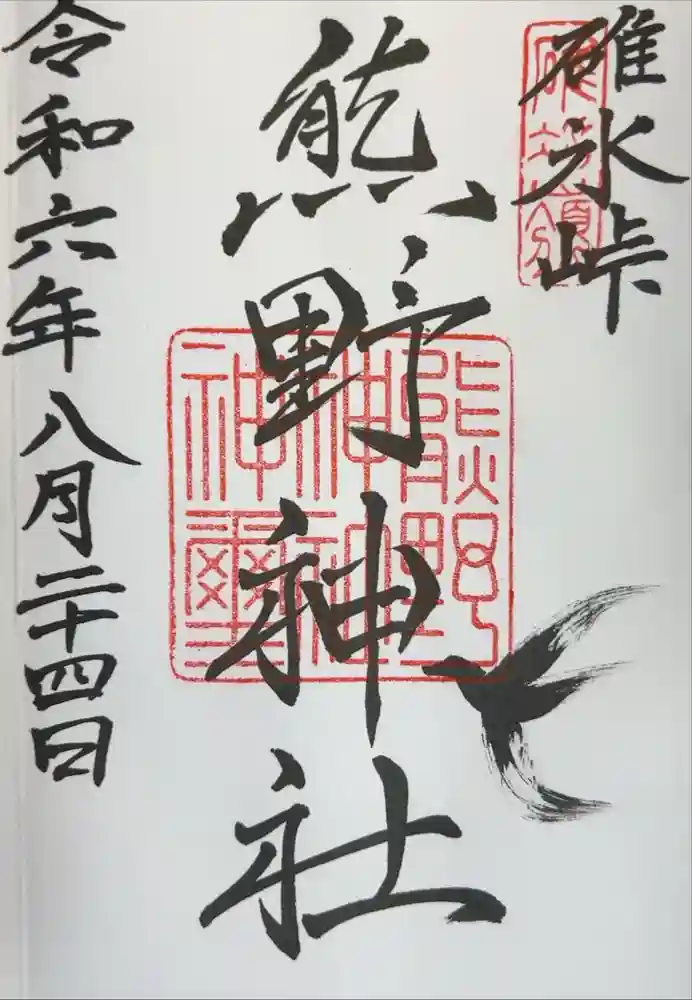 碓氷峠
碓氷嶺
熊野神社
熊野神社神璽
令和六年八月二十四日